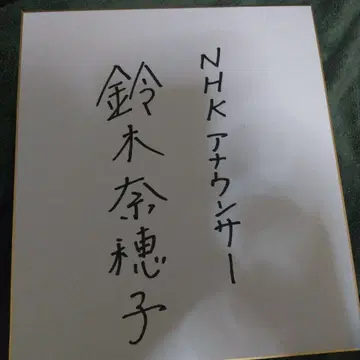 NHKアナウンサー
鈴木奈穂子